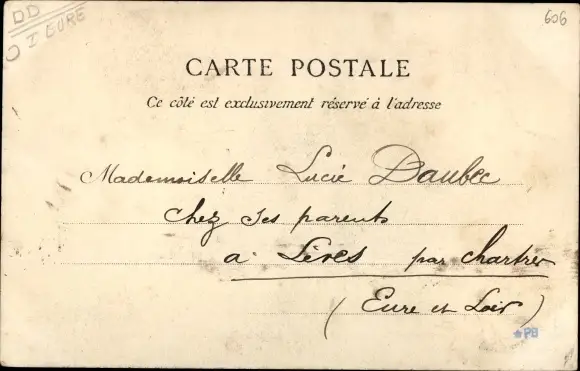 DD
I EURE
606
CARTE POSTALE
Ce côté est exclusivement réservé à l'adresse
Mademoiselle Lucie Daubec
chez ses parents
à Lèves par Chartres
(Eure et Loir)
PB